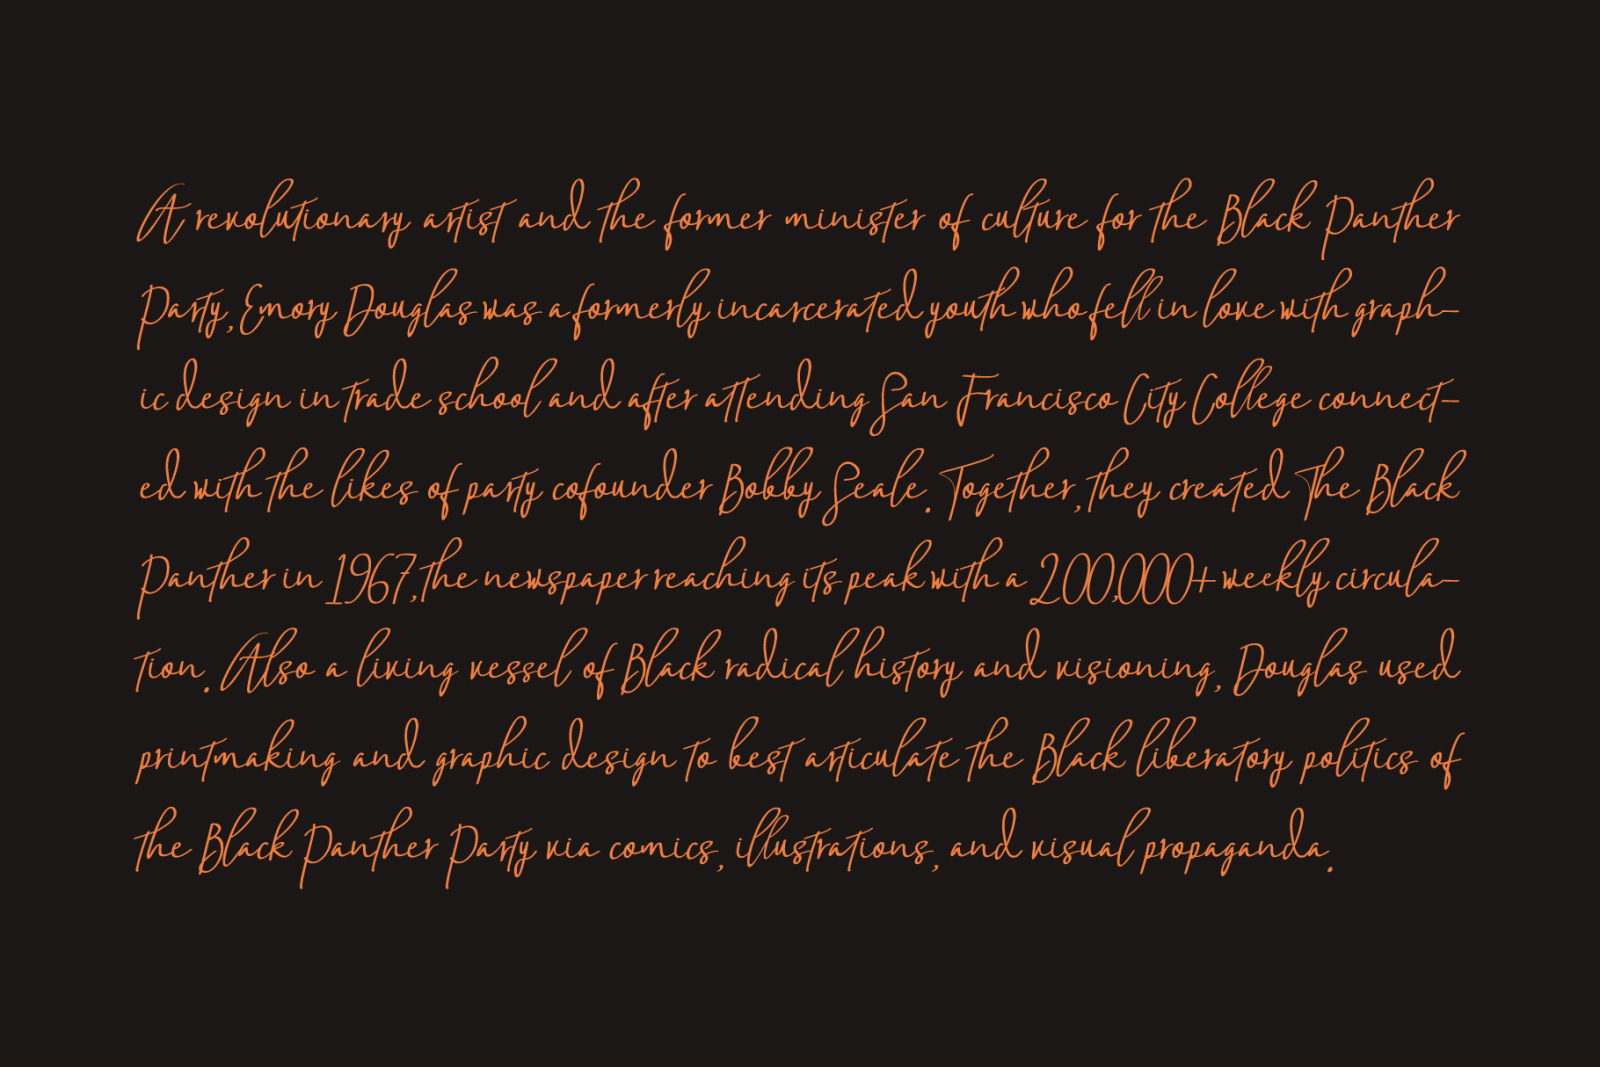 A revolutionary artist and the former minister of culture for the Black Panther
Party, Emory Douglas was a formerly incarcerated youth who fell in love with graph-
ic design in trade school and after attending San Francisco City College connect-
ed with the likes of party cofounder Bobby Seale. Together, they created The Black
Panther in 1967, the newspaper reaching its peak with a 200,000+ weekly circula-
tion. Also a living vessel of Black radical history and visioning, Douglas used
printmaking and graphic design to best articulate the Black liberatory politics of
the Black Panther Party via comics, illustrations, and visual propaganda.